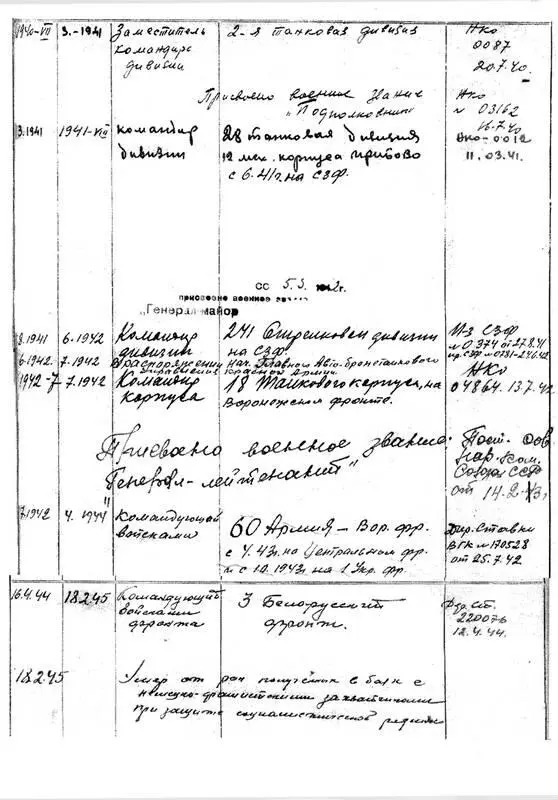 1940-VII 3.-1941 Заместитель 2-я танковая дивизия НКО
командира 0087
дивизии 20.7.40.
Присвоено военное звание НКО
"Подполковник" № 03162
16.7.40
3.1941 1941-VIII командир 28 танковая дивизия НКО-0012
дивизии 12 мех. корпуса Прибово 11.03.41.
с 6.41г. на СЗФ.
сс 5.5. 1942г.
присвоено военное звание
„Генерал-майор
8.1941 6.1942 Командир 241 Стрелковой дивизии Из СЗФ
дивизии на СЗФ. № 0374 от 27.8.41
6.1942. 7.1942 В распоряжении нач. Главного Авто-бронетанкового
управления Красной Армии НКО
1942-7 7.1942 Командир 18 Танкового корпуса, на 04864. 13.7.42
корпуса Воронежском фронте.
Присвоено военное звание Пост. Сов
Генерал-лейтенант" нар. ком.
Союза ССР
от 14.2.43г.
7.1942 4. 1944 Командующий 60 Армия — Вор. фр. Дир. Ставки
войсками с 4.43г. на Центральном фр. ВГК № 170528
и с 10.1943г. на 1 Укр. фр. от 25.7.42
16.4.44 18.2.45 Командующий 3 Белорусский Дир. Ст.
войсками фронт. 220076
фронта 12.4.44.
18.2.45 Умер от ран полученых в боях с
немецко-фашистскими захватчиками
при защите социалистической родины